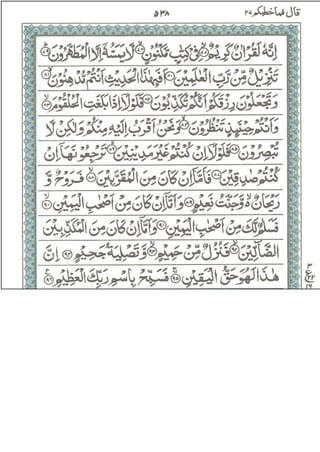 قال فما خطبكم ٢٧
٥٣٨
اِنَّهٗ لَقُرْاٰنٌ كَرِيْمٌ ۙ‏﴿۷۷﴾ فِىْ كِتٰبٍ مَّكْنُوْنٍ ۙ‏﴿۷۸﴾ لَّا يَمَسُّهٗۤ اِلَّا الْمُطَهَّرُوْنَ ؕ‏﴿۷۹﴾
تَنْزِيْلٌ مِّنْ رَّبِّ الْعٰلَمِيْنَ‏﴿۸۰﴾ اَفَبِهٰذَا الْحَدِيْثِ اَنْتُمْ مُّدْهِنُوْنَ ۙ‏﴿۸۱﴾
وَتَجْعَلُوْنَ رِزْقَكُمْ اَنَّكُمْ تُكَذِّبُوْنَ‏﴿۸۲﴾ فَلَوْلَاۤ اِذَا بَلَغَتِ الْحُلْقُوْمَ ۙ‏﴿۸۳﴾
وَاَنْتُمْ حِيْنَئِذٍ تَنْظُرُوْنَ ۙ‏﴿۸۴﴾ وَنَحْنُ اَقْرَبُ اِلَيْهِ مِنْكُمْ وَلٰكِنْ لَّا
تُبْصِرُوْنَ‏﴿۸۵﴾ فَلَوْلَاۤ اِنْ كُنْتُمْ غَيْرَ مَدِيْنِيْنَ ۙ‏﴿۸۶﴾ تَرْجِعُوْنَهَاۤ اِنْ
كُنْتُمْ صٰدِقِيْنَ‏﴿۸۷﴾ فَاَمَّاۤ اِنْ كَانَ مِنَ الْمُقَرَّبِيْنَ ۙ‏﴿۸۸﴾ فَرَوْحٌ وَّ
رَيْحَانٌ ۙ وَّجَنَّتُ نَعِيْمٍ‏﴿۸۹﴾ وَاَمَّاۤ اِنْ كَانَ مِنْ اَصْحٰبِ الْيَمِيْنِ ۙ‏﴿۹۰﴾
فَسَلٰمٌ لَّكَ مِنْ اَصْحٰبِ الْيَمِيْنِ ؕ‏﴿۹۱﴾ وَاَمَّاۤ اِنْ كَانَ مِنَ الْمُكَذِّبِيْنَ
الضَّآلِّيْنَ ۙ‏﴿۹۲﴾ فَنُزُلٌ مِّنْ حَمِيْمٍ ۙ‏﴿۹۳﴾ وَّتَصْلِيَةُ جَحِيْمٍ‏﴿۹۴﴾ اِنَّ
هٰذَا لَهُوَ حَقُّ الْيَقِيْنِ ۚ‏﴿۹۵﴾ فَسَبِّحْ بِاسْمِ رَبِّكَ الْعَظِيْمِ‏﴿۹۶﴾